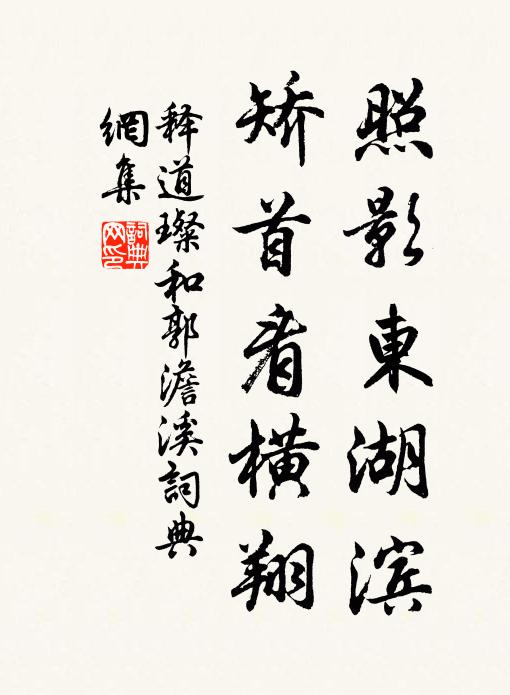 照影東湖滨
矫首看横翔
释道璨和郭澹溪詞典
網集
詞典
网印